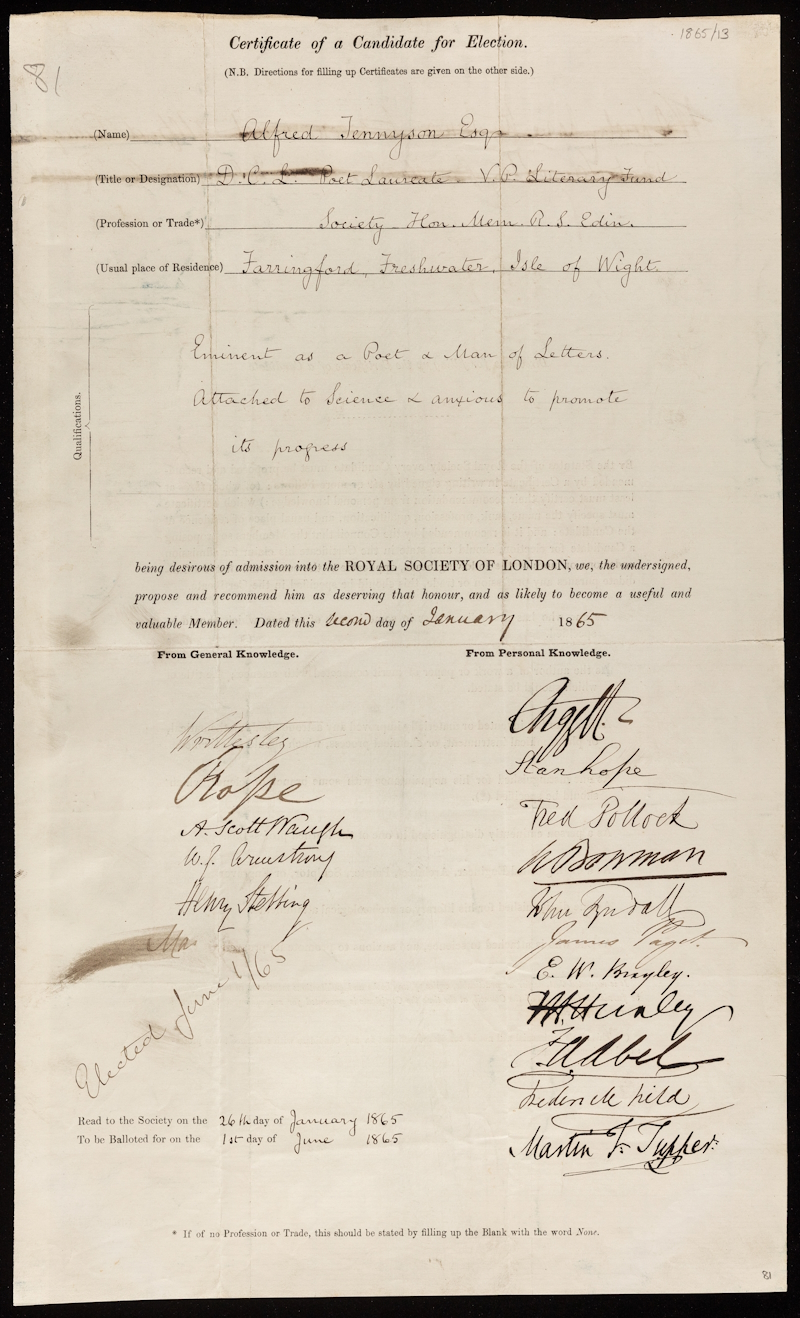 1865/13
81
Certificate of a Candidate for Election.
(N.B. Directions for filling up Certificates are given on the other side.)
(Name) Alfred Tennyson Esqr
(Title or Designation) D.C.L. Poet Laureate - V.P. Literary Fund
(Profession or Trade*) Society Hon. Mem. R.S. Edin.
(Usual place of Residence) Farringford, Freshwater, Isle of Wight.
Qualifications.
Eminent as a Poet & Man of Letters.
Attached to Science & anxious to promote
its progress
being desirous of admission into the ROYAL SOCIETY OF LONDON, we, the undersigned,
propose and recommend him as deserving that honour, and as likely to become a useful and
valuable Member. Dated this second day of January 1865
From General Knowledge.
Wrottesley
Rosse
A. Scott Waugh
W.G. Armstrong
Henry Stebbing
Elected June 1/65
From Personal Knowledge.
Argyll
Stanhope
Fred Pollock
W Bowman
John Tyndall
James Paget
E. W. Brayley.
F.A. Abel
Frederick Field
Martin F. Tupper
Read to the Society on the 26th day of January 1865
To be Balloted for on the 1st day of June 1865
* If of no Profession or Trade, this should be stated by filling up the Blank with the word None.
81